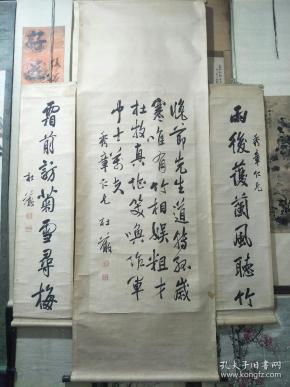 雨後護蘭風聽竹
秀章仁兄
晚節先生道轉孤歲
寒唯有竹相娛粗才
杜牧真堪笑喚作軍
中十萬夫
秀章仁兄 杜巖
霜前訪菊雪尋梅
杜巖
孔夫子旧书网